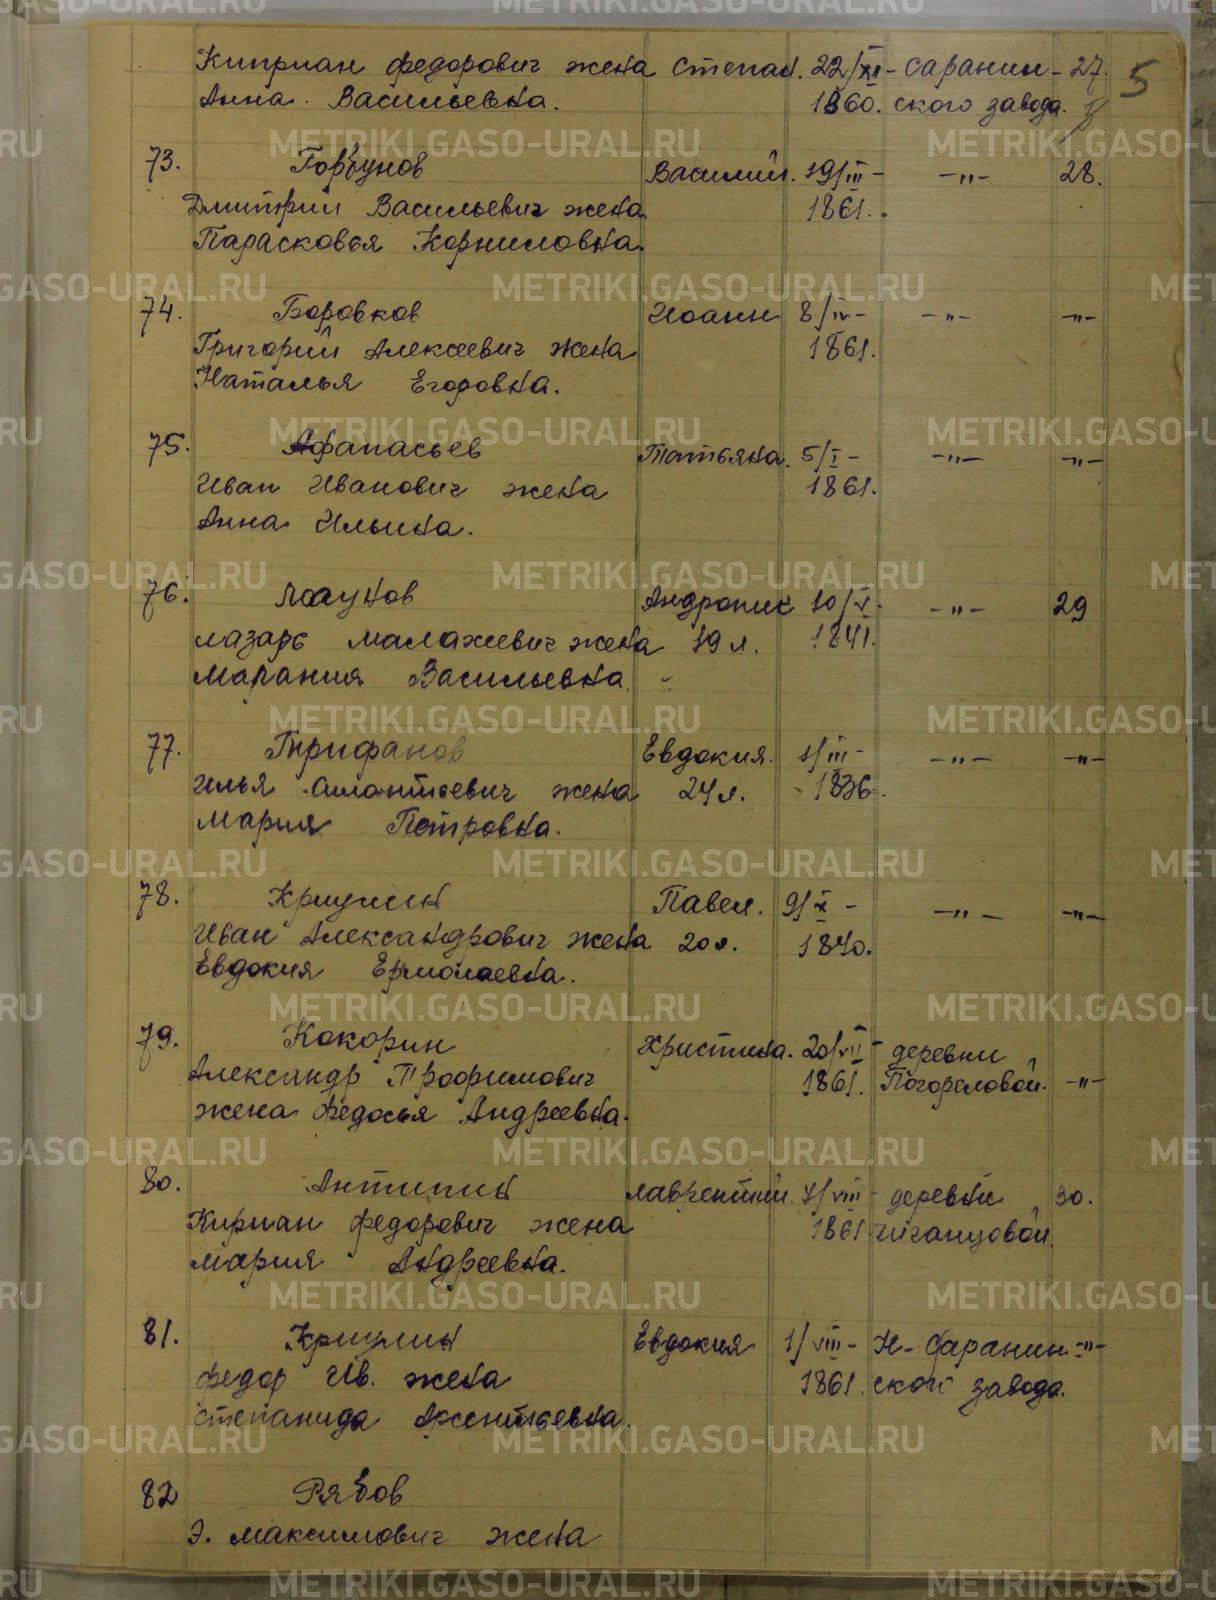 Киприан Федорович жена Степан. 22/XI- Саранин- 27. 5
Анна Васильевна. 1860. ского завода.
73. Горбунов Василий. 19/III- -"- 28.
Дмитрий Васильевич жена 1861.
Парасковья Корниловна.
74. Боровков Иоанн 8/IV- -"- -"-
Григорий Алексеевич жена 1861.
Наталья Егоровна.
75. Афанасьев Татьяна. 5/I- -"- -"-
Иван Иванович жена 1861.
Анна Ильина.
76. Андроник 10/V- -"- 29
Лазарь Малахиевич жена 19 л. 1841.
Мариания Васильевна
77. Трифанов Евдокия. 1/III- -"- -"-
Илья жена 24 л. 1836.
Мария Петровна.
78. Павел. 9/X- -"- -"-
Иван Александрович жена 20 л. 1840.
Евдокия Ермолаевна.
79. Кокорин Христина. 20/VII- деревни
Александр Трофимович 1861. Погореловой. -"-
жена Федосья Андреевна.
80. Антипин Лаврентий. 7/VIII- деревни 30.
Кириан Федорович жена 1861
Мария Андреевна.
81. Евдокия 1/VIII- Н-Саранин- -"-
Федор Ив. жена 1861. ской завода.
Степанида Арсентьевна.
82 Рябов
Э. Максимович жена
METRIKI.GASO-URAL.RU